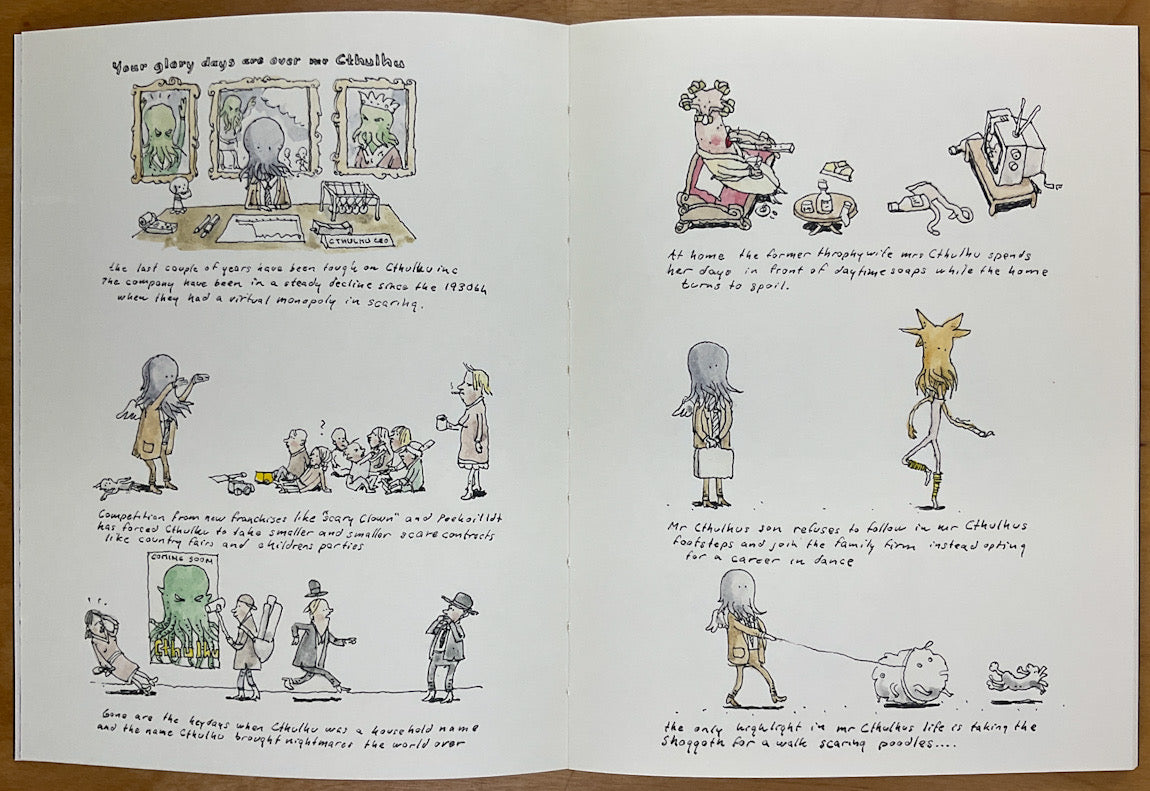 Your glory days are over mr Cthulhu
CTHULHU CEO
the last couple of years have been tough on Cthulhu inc
The company have been in a steady decline since the 1930th
when they had a virtual monopoly in scaring.
?
Competition from new franchises like "Scary Clown" and
has forced Cthulhu to take smaller and smaller scare contracts
like country fairs and childrens parties
COMING SOON
Cthulhu
Gone are the heydays when Cthulhu was a household name
and the name Cthulhu brought nightmares the world over
At home the former throphywife mrs Cthulhu spends
her days in front of daytime soaps while the home
turns to spoil.
Mr Cthulhus son refuses to follow in mr Cthulhus
footsteps and join the family firm instead opting
for a career in dance
the only highlight in mr Cthulhus life is taking the
Shoggoth for a walk scaring poodles....